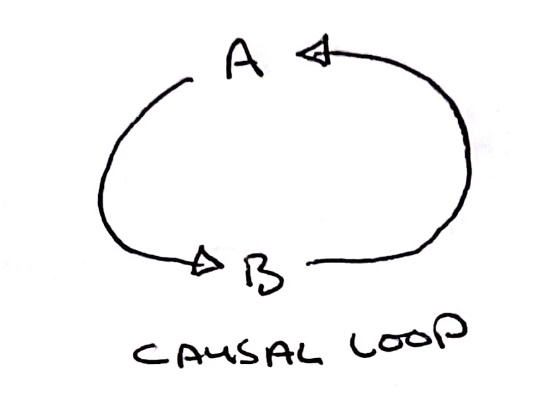 A
B
CAUSAL LOOP